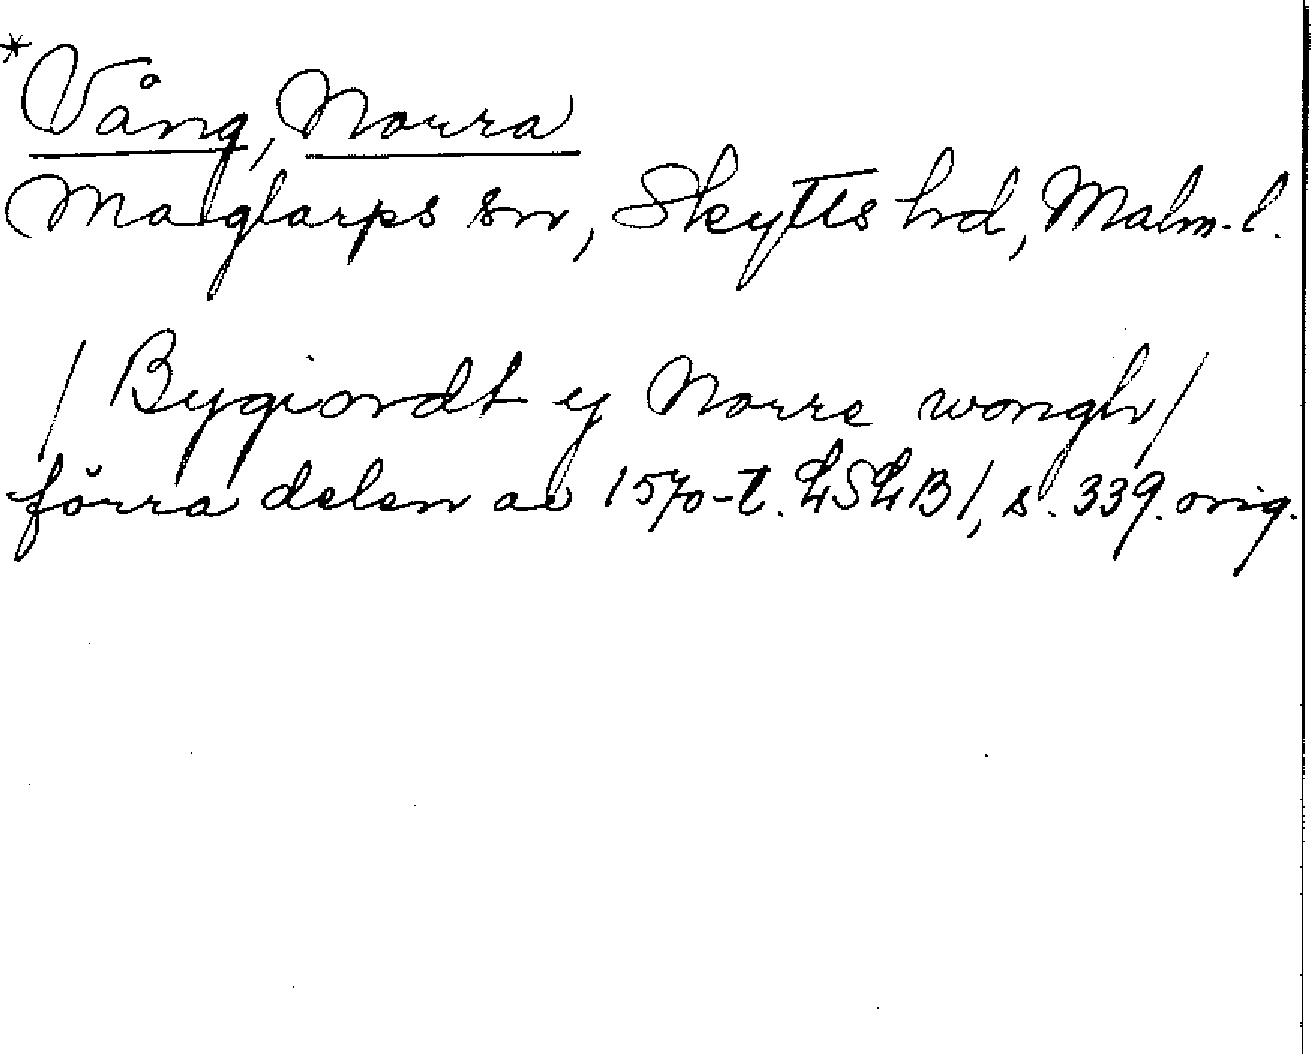 *Vång, Norra
Maglarps sn, Skytts hd, Malm. l.
/ Bygiordt y Norre wongh /
förra delen av 1570-t. LSLB 1, s. 339. orig.